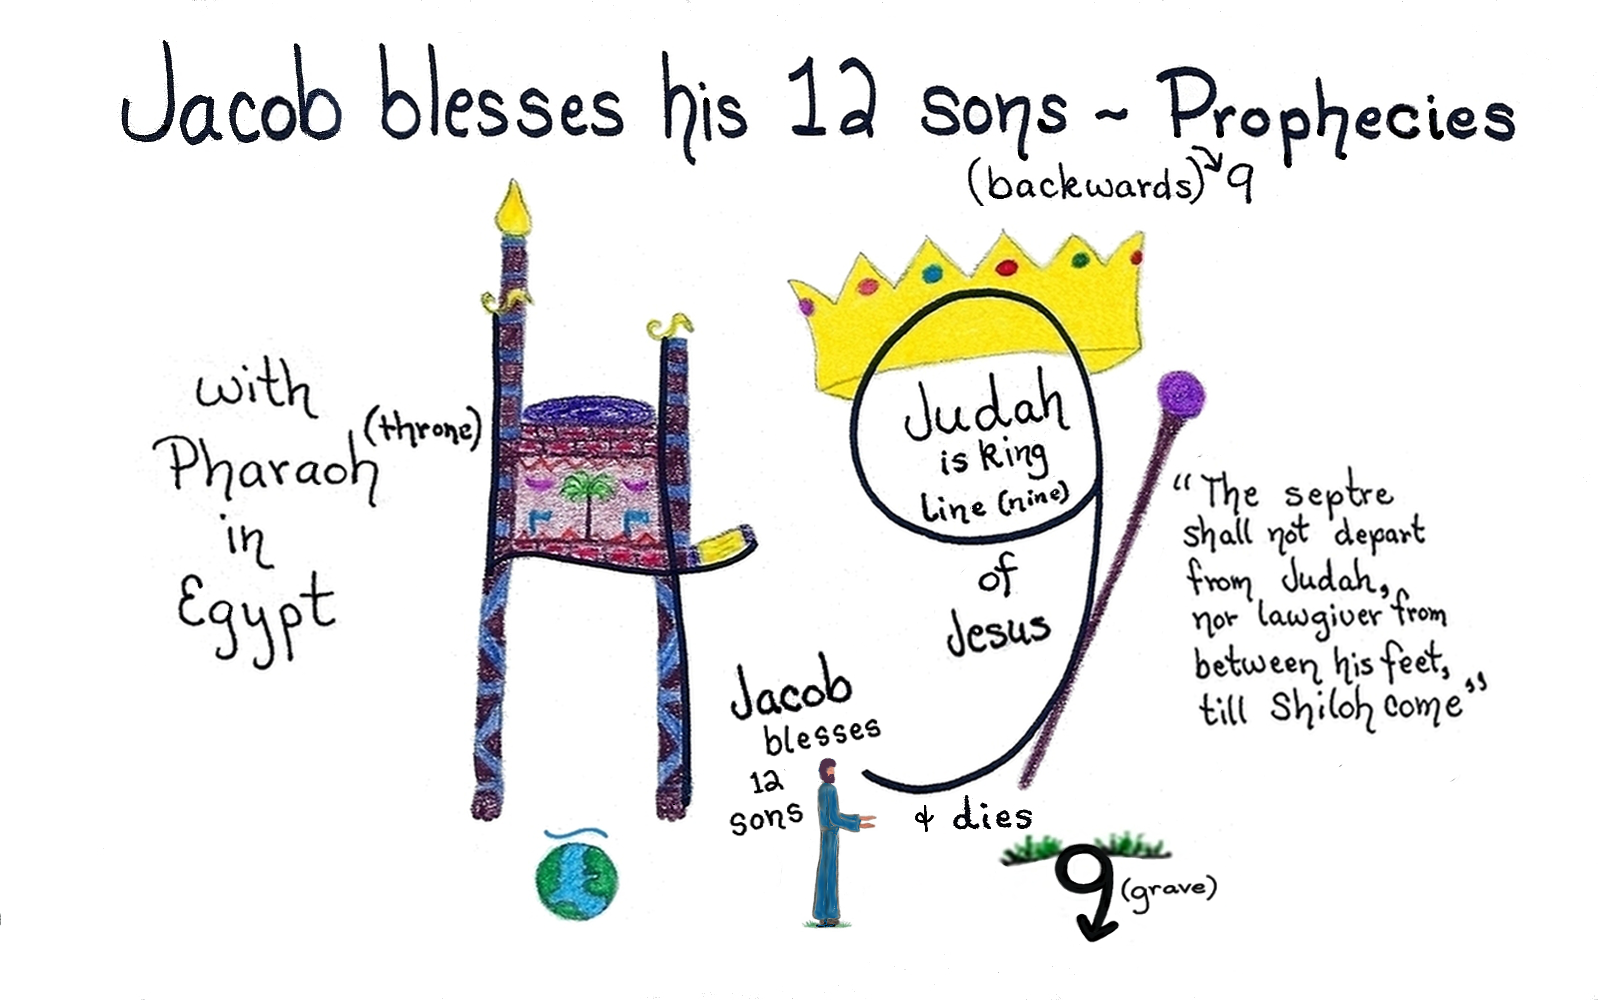 Jacob blesses his 12 sons ~ Prophecies
(backwards) 9
with
Pharaoh (throne)
in
Egypt
Judah
is king
line (nine)
of
Jesus
"The septre
shall not depart
from Judah,
nor lawgiver from
between his feet,
till Shiloh come"
Jacob
blesses
12
sons
& dies
9 (grave)